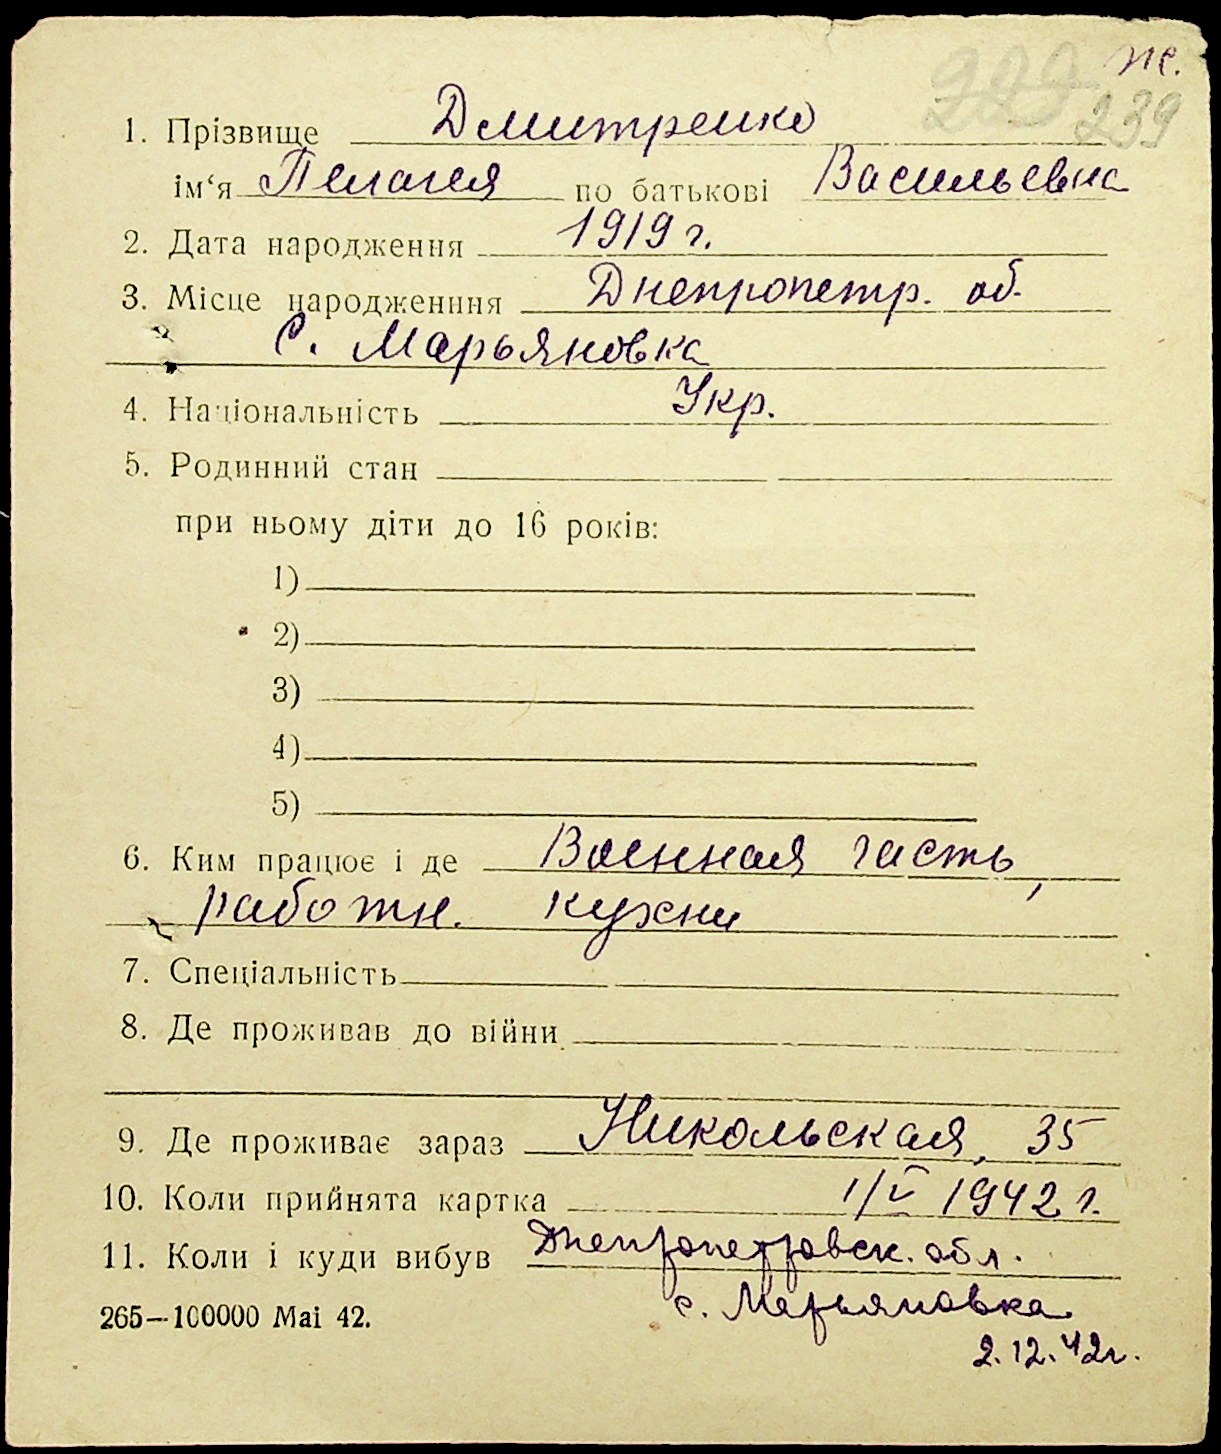 ж.
239
1. Прізвище Дмитренко
ім‘я Пелагея по батькові Васильевна
2. Дата народження 1919 г.
3. Місце народженння Днепропетр. об.
С. Марьяновка
4. Національність Укр.
5. Родинний стан
при ньому діти до 16 років:
1)
2)
3)
4)
5)
6. Ким працює і де Военная часть,
работн. кухни
7. Спеціальність
8. Де проживав до війни
9. Де проживає зараз Никольская, 35
10. Коли прийнята картка 1/V 1942 г.
11. Коли і куди вибув Днепропетровск. обл.
265—100000 Mai 42. с. Марьяновка
2.12.42г.